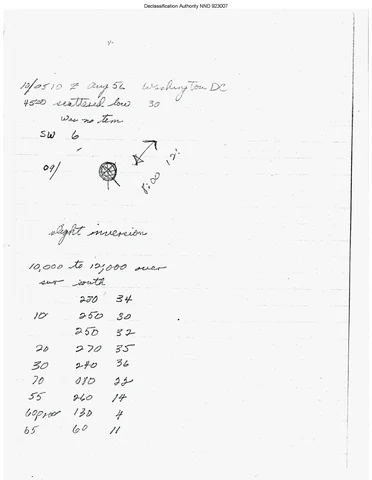 Declassification Authority NND 923007
10/0510 Z Aug 56 Washington DC
4500 scattered low 30
Was no tem
SW 6
09/
8:00 12:
slight inversion
10,000 to 12,000 over
sur south
230 34
10 250 30
250 32
20 270 35
30 240 36
70 080 22
55 260 14
60,000 130 4
65 60 11